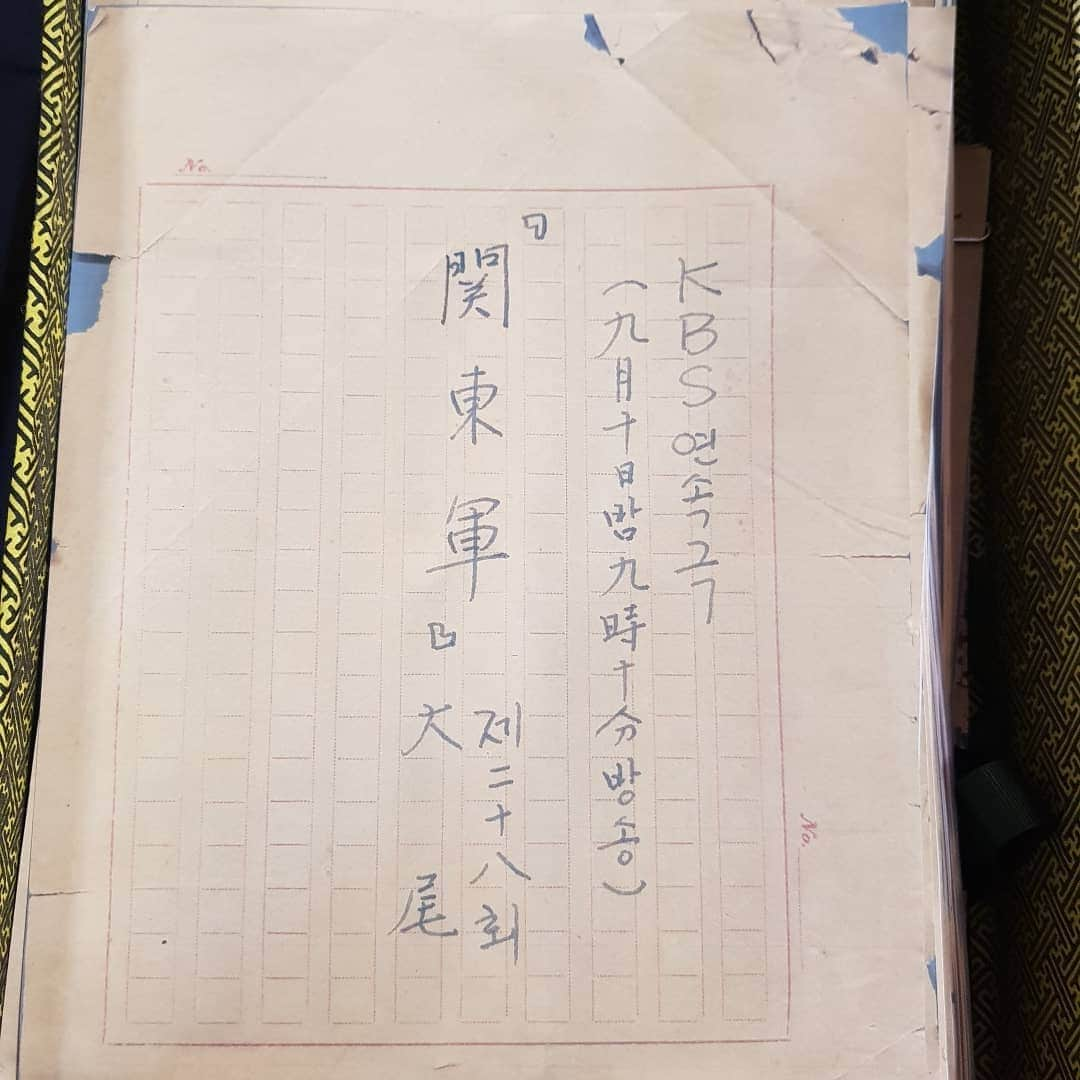 KBS연속극
(九月十日밤九時十分방송)
『関東軍』
제二十八회
大尾
No.
No.